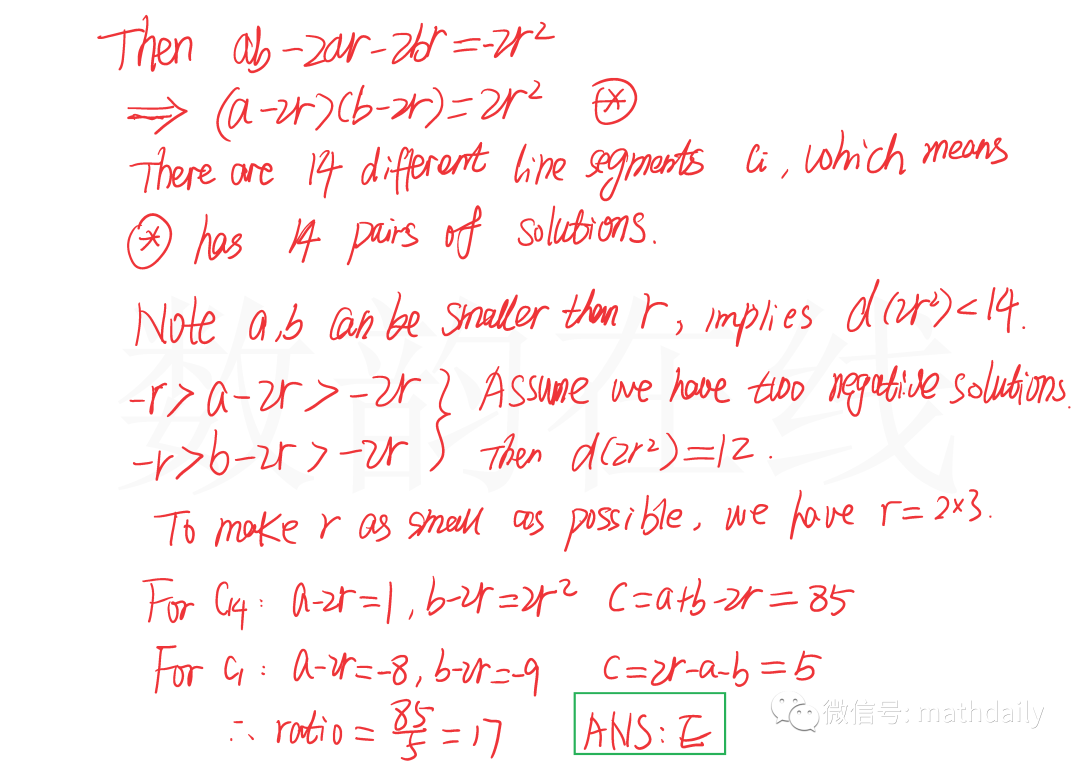 Then ab-2ar-2br=-2r²
⟹ (a-2r)(b-2r)=2r² ⊛
There are 14 different line segments cᵢ, which means
⊛ has 14 pairs of solutions.
Note a,b can be smaller than r, implies d(2r²)<14.
-r>a-2r>-2r } Assume we have two negative solutions.
-r>b-2r>-2r } Then d(2r²)=12.
To make r as small as possible, we have r=2×3.
For C₁₄: a-2r=1, b-2r=2r² C=a+b-2r=85
For C₁: a-2r=-8, b-2r=-9 C=2r-a-b=5
∴ ratio = 85/5 = 17 ANS: E
数的在线
微信号: mathdaily